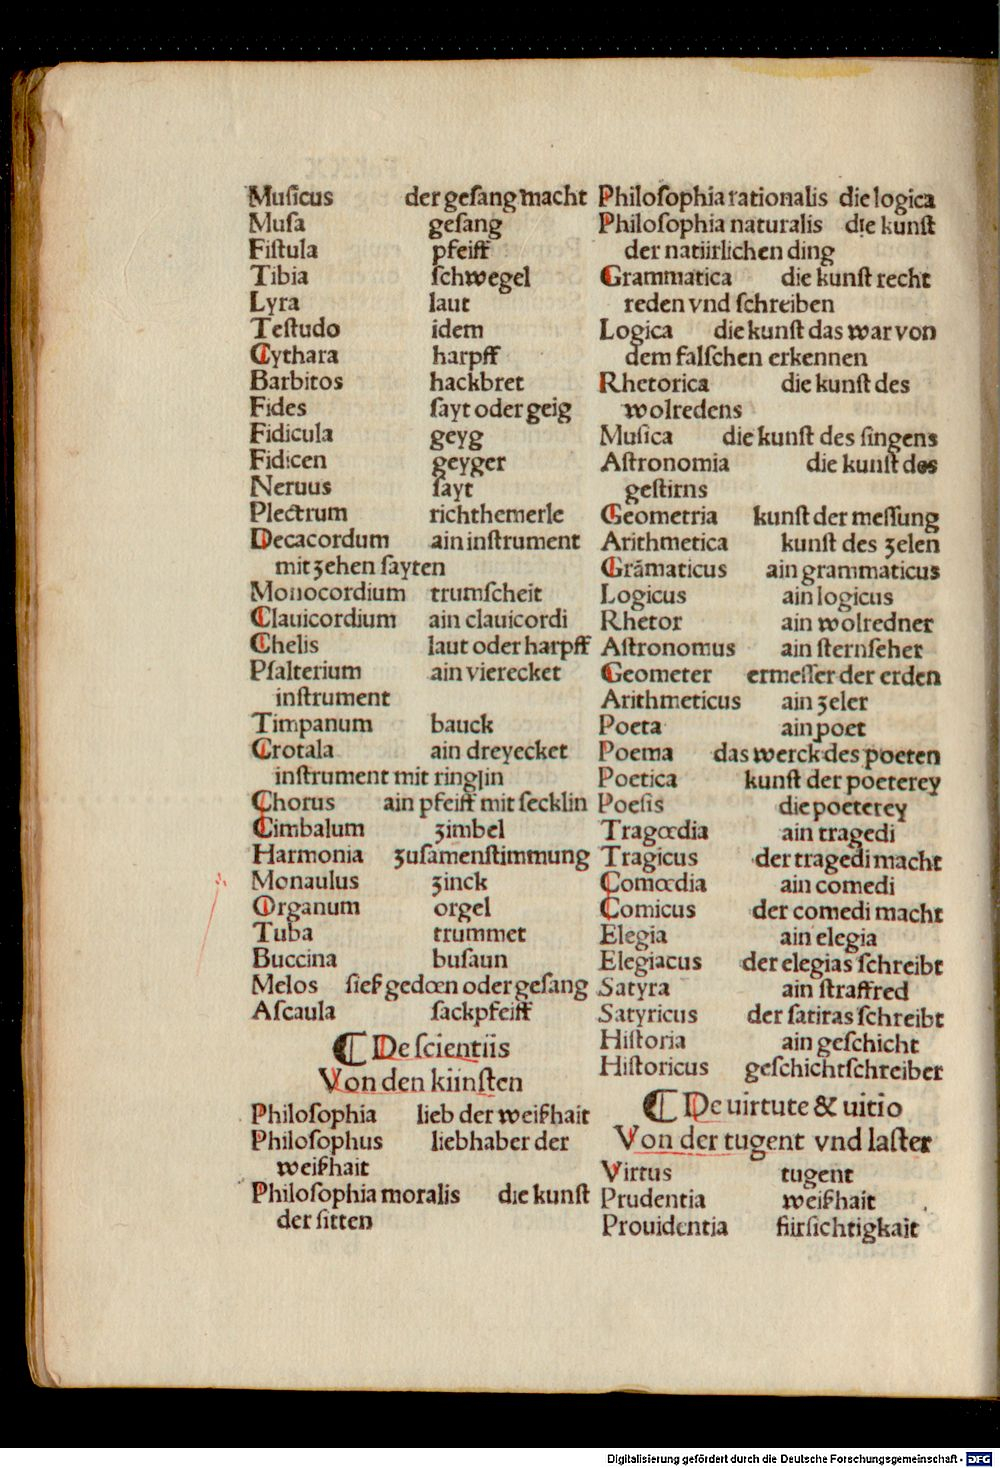 Muſicus der geſang macht
Muſa geſang
Fiſtula pfeiff
Tibia ſchwegel
Lyra laut
Teſtudo idem
Cythara harpff
Barbitos hackbret
Fides ſayt oder geig
Fidicula geyg
Fidicen geyger
Neruus ſayt
Plectrum richthemerle
Decacordum ain inſtrument
mit zehen ſayten
Monocordium trumſcheit
Clauicordium ain clauicordi
Chelis laut oder harpff
Pſalterium ain vierecket
inſtrument
Timpanum bauck
Crotala ain dreyecket
inſtrument mit ringlin
Chorus ain pfeiff mit ſecklin
Cimbalum zimbel
Harmonia zuſamenſtimmung
Monaulus zinck
Organum orgel
Tuba trummet
Buccina buſaun
Melos ſieß gedœn oder geſang
Aſcaula ſackpfeiff
¶ De ſcientiis
Von den kiinſten
Philoſophia lieb der weißhait
Philoſophus liebhaber der
weißhait
Philoſophia moralis die kunſt
der ſitten
Philoſophia rationalis die logica
Philoſophia naturalis die kunſt
der natiirlichen ding
Grammatica die kunſt recht
reden vnd ſchreiben
Logica die kunſt das war von
dem falſchen erkennen
Rhetorica die kunſt des
wolredens
Muſica die kunſt des ſingens
Aſtronomia die kunſt des
geſtirns
Geometria kunſt der meſſung
Arithmetica kunſt des zelen
Grãmaticus ain grammaticus
Logicus ain logicus
Rhetor ain wolredner
Aſtronomus ain ſternſeher
Geometer ermeſſer der erden
Arithmeticus ain zeler
Poeta ain poet
Poema das werck des poeten
Poetica kunſt der poeterey
Poeſis die poeterey
Tragœdia ain tragedi
Tragicus der tragedi macht
Comœdia ain comedi
Comicus der comedi macht
Elegia ain elegia
Elegiacus der elegias ſchreibt
Satyra ain ſtraffred
Satyricus der ſatiras ſchreibt
Hiſtoria ain geſchicht
Hiſtoricus geſchichtſchreiber
¶ De uirtute & uitio
Von der tugent vnd laſter
Virtus tugent
Prudentia weißhait
Prouidentia fiirſichtigkait
Digitalisierung gefördert durch die Deutsche Forschungsgemeinschaft - DFG